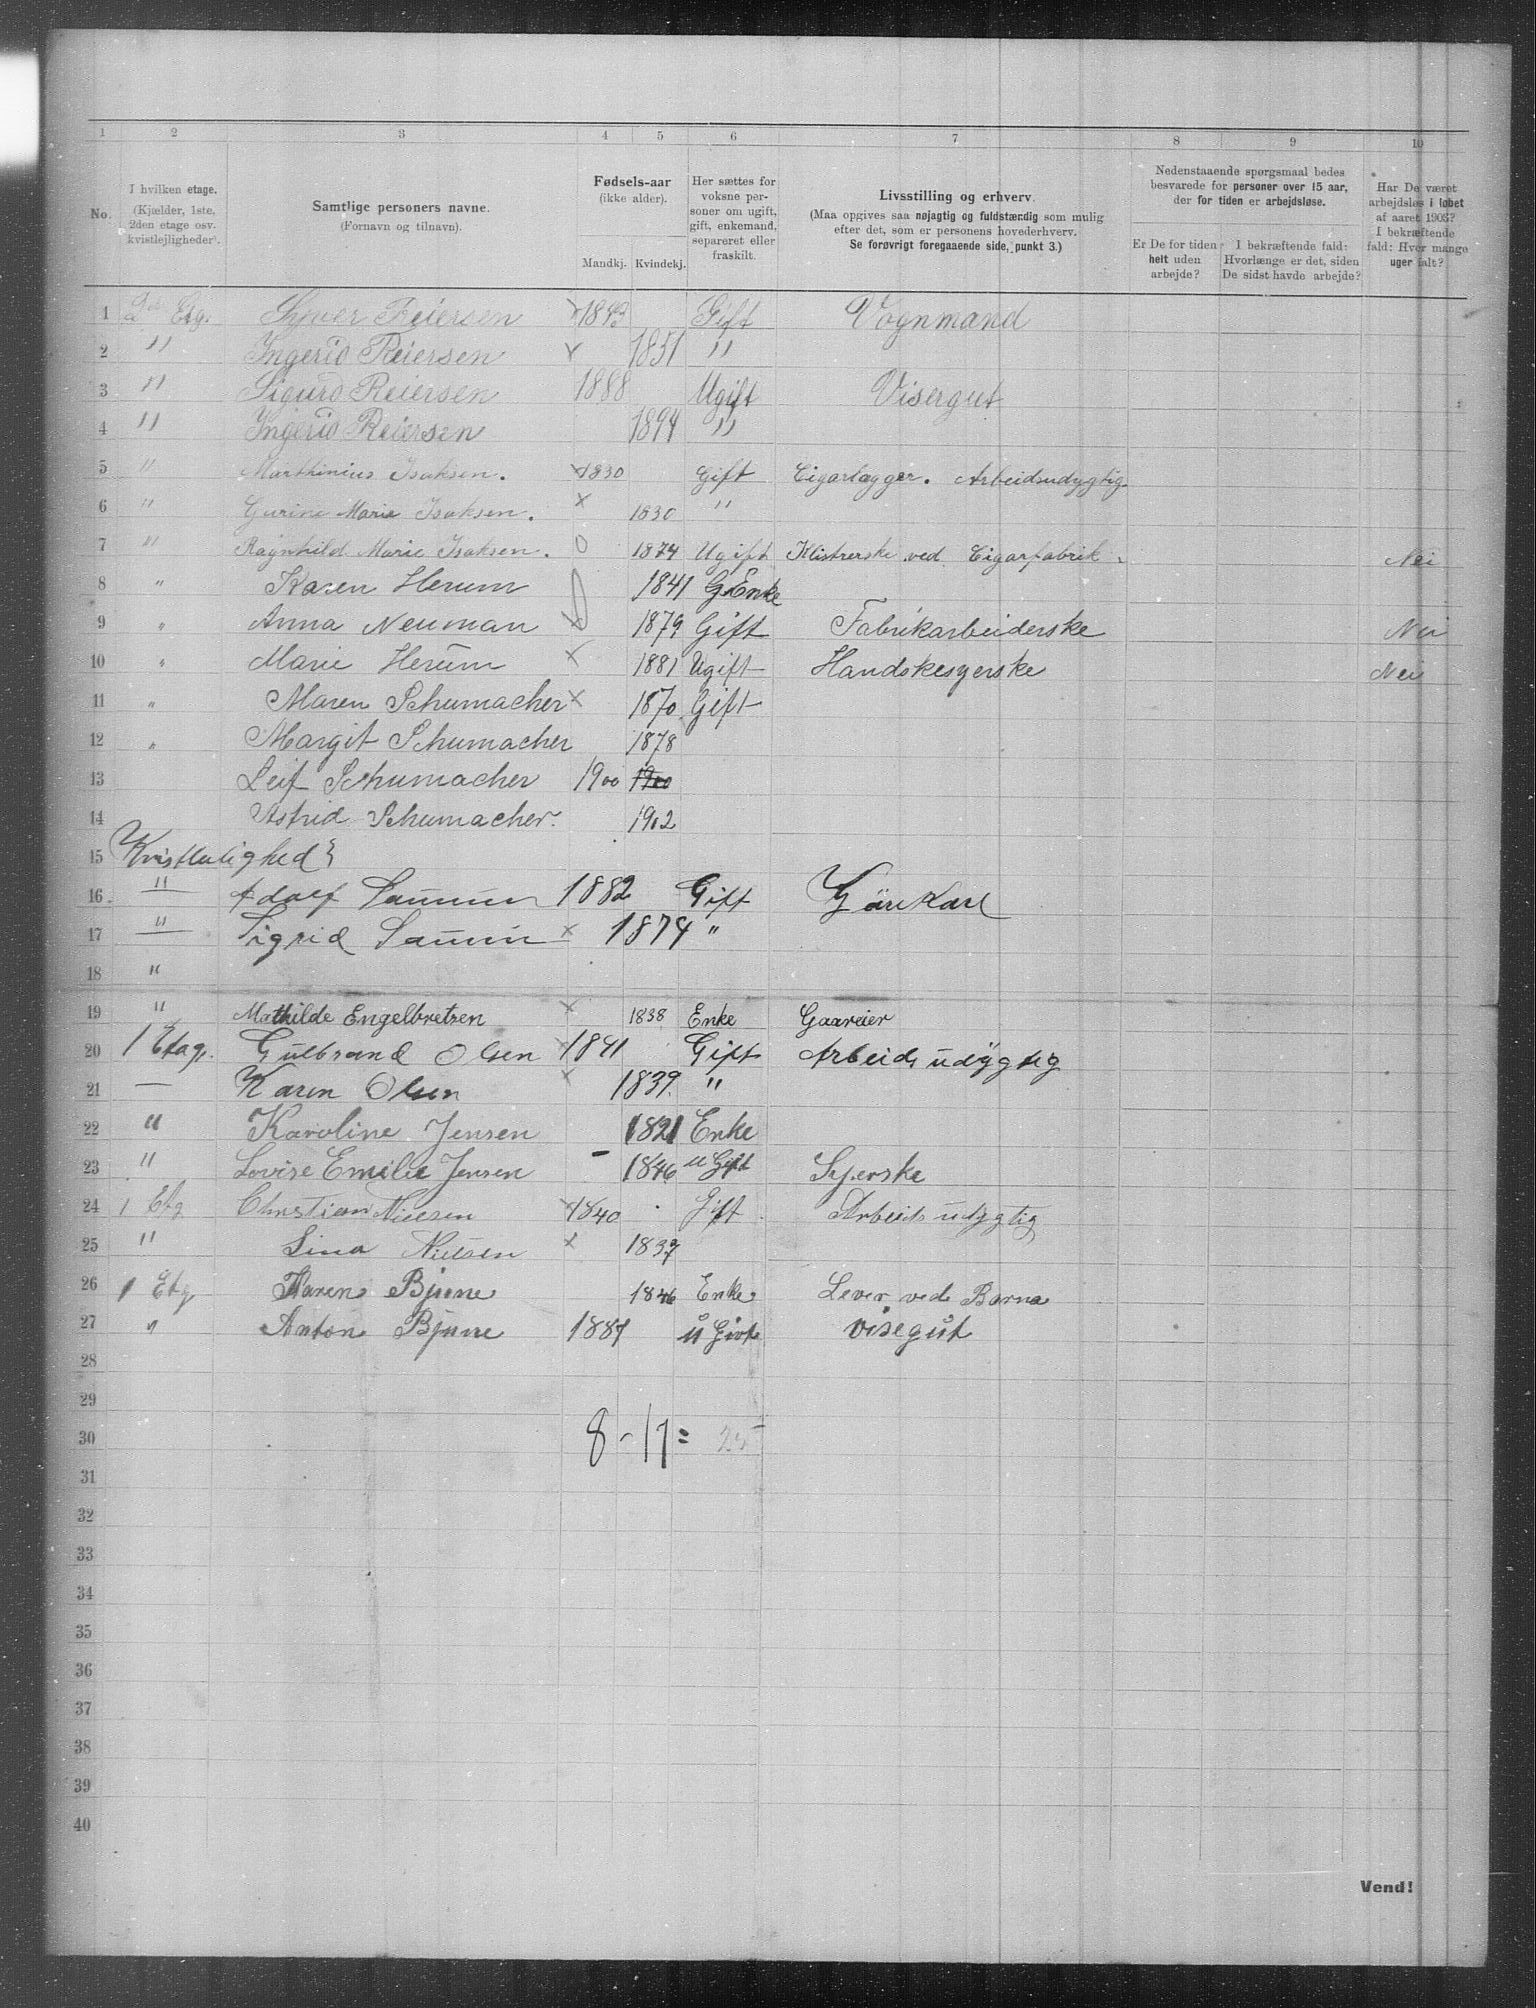 1 2 3 4 5 6 7 8 9 10
No. I hvilken etage. (Kjælder, 1ste, 2den etage osv. kvistlejligheder). Samtlige personers navne. (Fornavn og tilnavn). Fødsels-aar (ikke alder). Mandkj. Kvindekj. Her sættes for voksne personer om ugift, gift, enkemand, separeret eller fraskilt. Livsstilling og erhverv. (Maa opgives saa nøjagtig og fuldstændig som mulig efter det, som er personens hovederhverv. Se forøvrigt foregaaende side, punkt 3.) Nedenstaaende spørgsmaal bedes besvarede for personer over 15 aar, der for tiden er arbejdsløse. Er De for tiden helt uden arbejde? I bekræftende fald: Hvorlænge er det, siden De sidst havde arbejde? Har De været arbejdsløs i løbet af aaret 1905? I bekræftende fald: Hvor mange uger ialt?
1 2den Etg. Syver Reiersen × Gift Vognmand
2 " Ingerid Reiersen × 1851 "
3 " Sigurd Reiersen 1888 Ugift Visergut
4 " Ingerid Reiersen 1894 "
5 " Marthinius Isaksen. ×1830 Gift Cigarlægger. Arbeidsudygtig.
6 " Gurine Marie Isaksen. × 1830 "
7 " Ragnhild Marie Isaksen. 0 1874 Ugift Klistrerske ved Cigarfabrik. Nei
8 " Karen Herum 1841 G Enke
9 " Anna Neuman × 1879 Gift Fabrikarbeiderske Nei
10 " Marie Herum × 1881 Ugift Handskesyerske Nei
11 " Maren Schumacher × 1870 Gift
12 " Margit Schumacher 1878
13 Leif Schumacher 1900 1900
14 Astrid Schumacher. 1902
15 Kvistleilighed
16 " Adolf 1882 Gift
17 " Sigrid × 1874 "
18 "
19 " Mathilde Engelbretsen × 1838 Enke Gaareier
20 1 Etage. Gulbrand Olsen ×1841 Gift Arbeidsudygtig
21 — Karen Olsen × 1839. "
22 " Karoline Jensen 1821 Enke
23 " Lovise Emilie Jensen - 1846 u Gift Syerske
24 1 Etg Christian Nielsen ×1840 Gift. Arbeidsudygtig
25 " Lina Nielsen × 1837
26 1 Etg Maren Bjune 1846 Enke Lever ved Barna
27 " Anton Bjune 1887 u Givt visegut
28
29
30 8-17= 25
31
32
33
34
35
36
37
38
39
40
Vend!